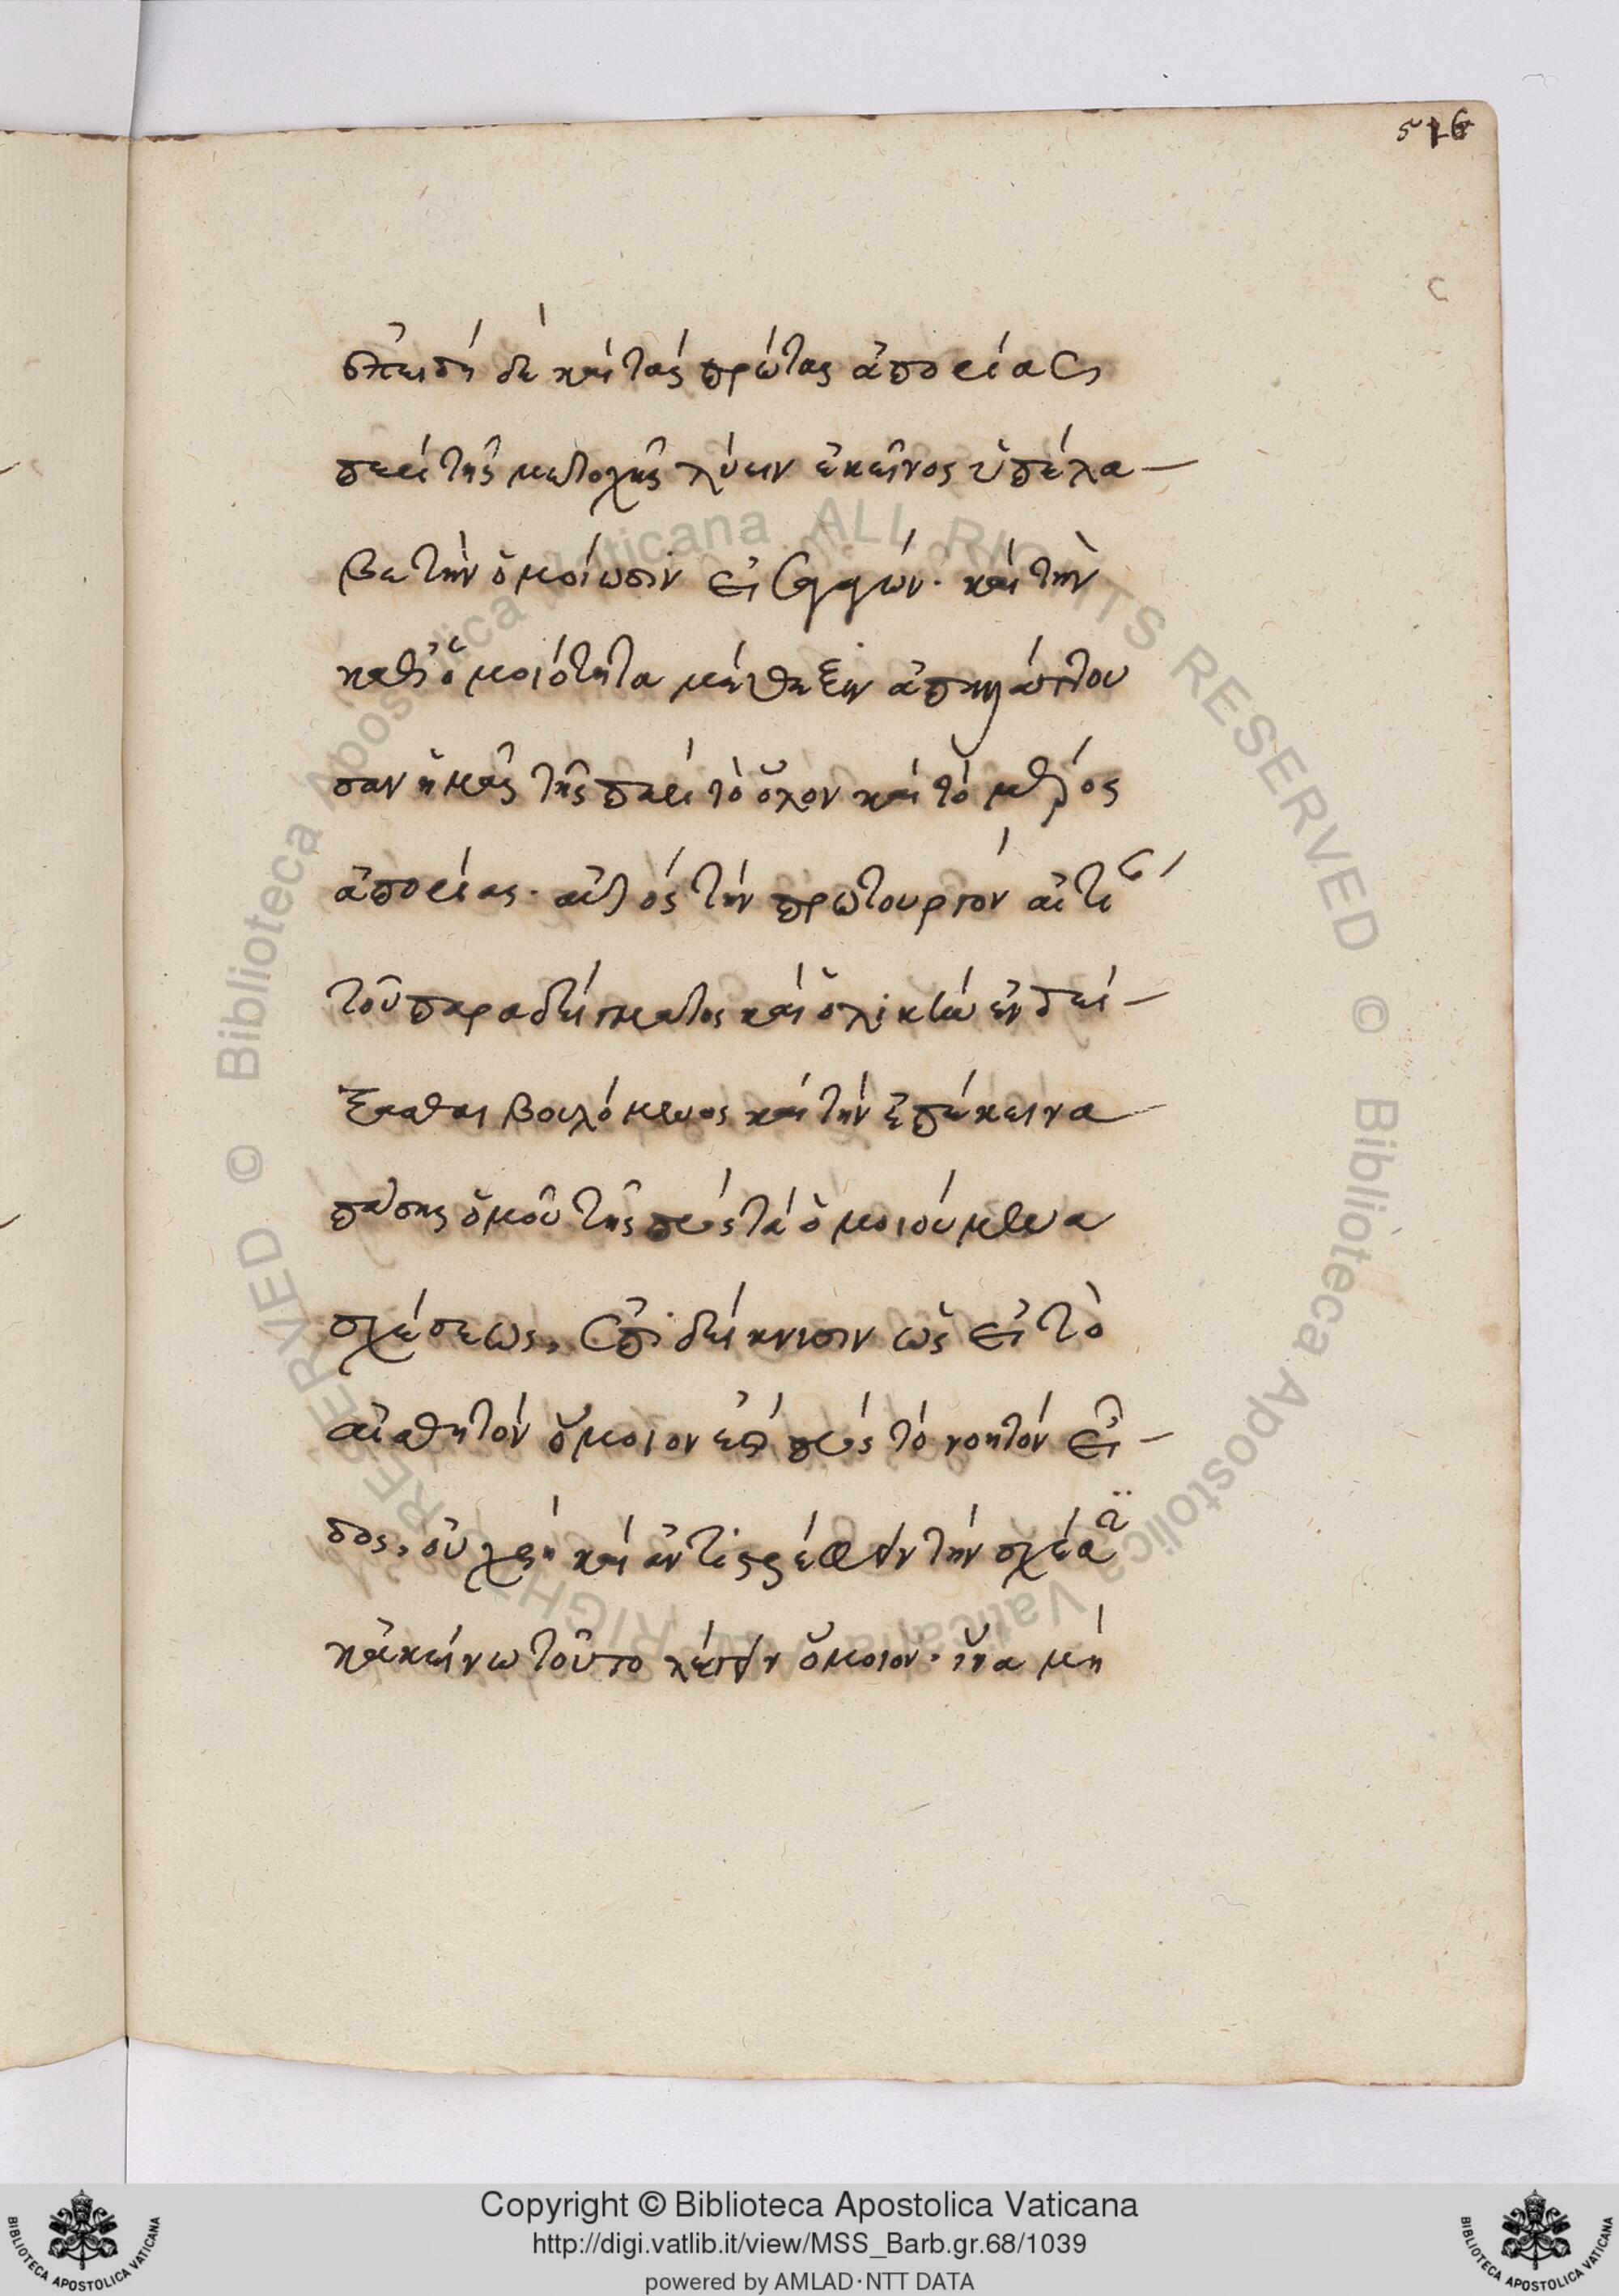 516
ἐπειδὴ δὲ καὶ τὰς πρώτας ἀπορίας
περὶ τῆς μετοχῆς λύειν ἐκεῖνος ὑπέλα-
βε τὴν ὁμοίωσιν εἰσηγῶν· καὶ τὴν
καθ' ὁμοιότητα μέθεξιν ἀπαλάττου
σαν ἡμᾶς τῆς περὶ τὸ ὅλον καὶ τὸ μέρος
ἀπορίας· αὐτὸς τὴν πρωτουργὸν αἰτί
τοῦ παραδείγματος καὶ ὁλικὴν ἐνδεί-
ξασθαι βουλόμενος καὶ τὴν ἐπέκεινα
πάσης ὁμοῦ τῆς πρὸς τὰ ὁμοιούμενα
σχέσεως, ἐπιδείκνυσιν ὡς εἰ τὸ
αἰσθητὸν ὅμοιον ἐστὶ πρὸς τὸ νοητὸν εἶ-
δος, οὐ χρὴ καὶ ἀντιστρέφειν τὴν σχέσιν
κἀκείνω τοῦτο λέγειν ὅμοιον· ἵνα μὴ
Copyright © Biblioteca Apostolica Vaticana
http://digi.vatlib.it/view/MSS_Barb.gr.68/1039
powered by AMLAD·NTT DATA
BIBLIOTECA APOSTOLICA VATICANA
BIBLIOTECA APOSTOLICA VATICANA
© Biblioteca Apostolica Vaticana ALL RIGHTS RESERVED © Biblioteca Apostolica Vaticana ALL RIGHTS RESERVED